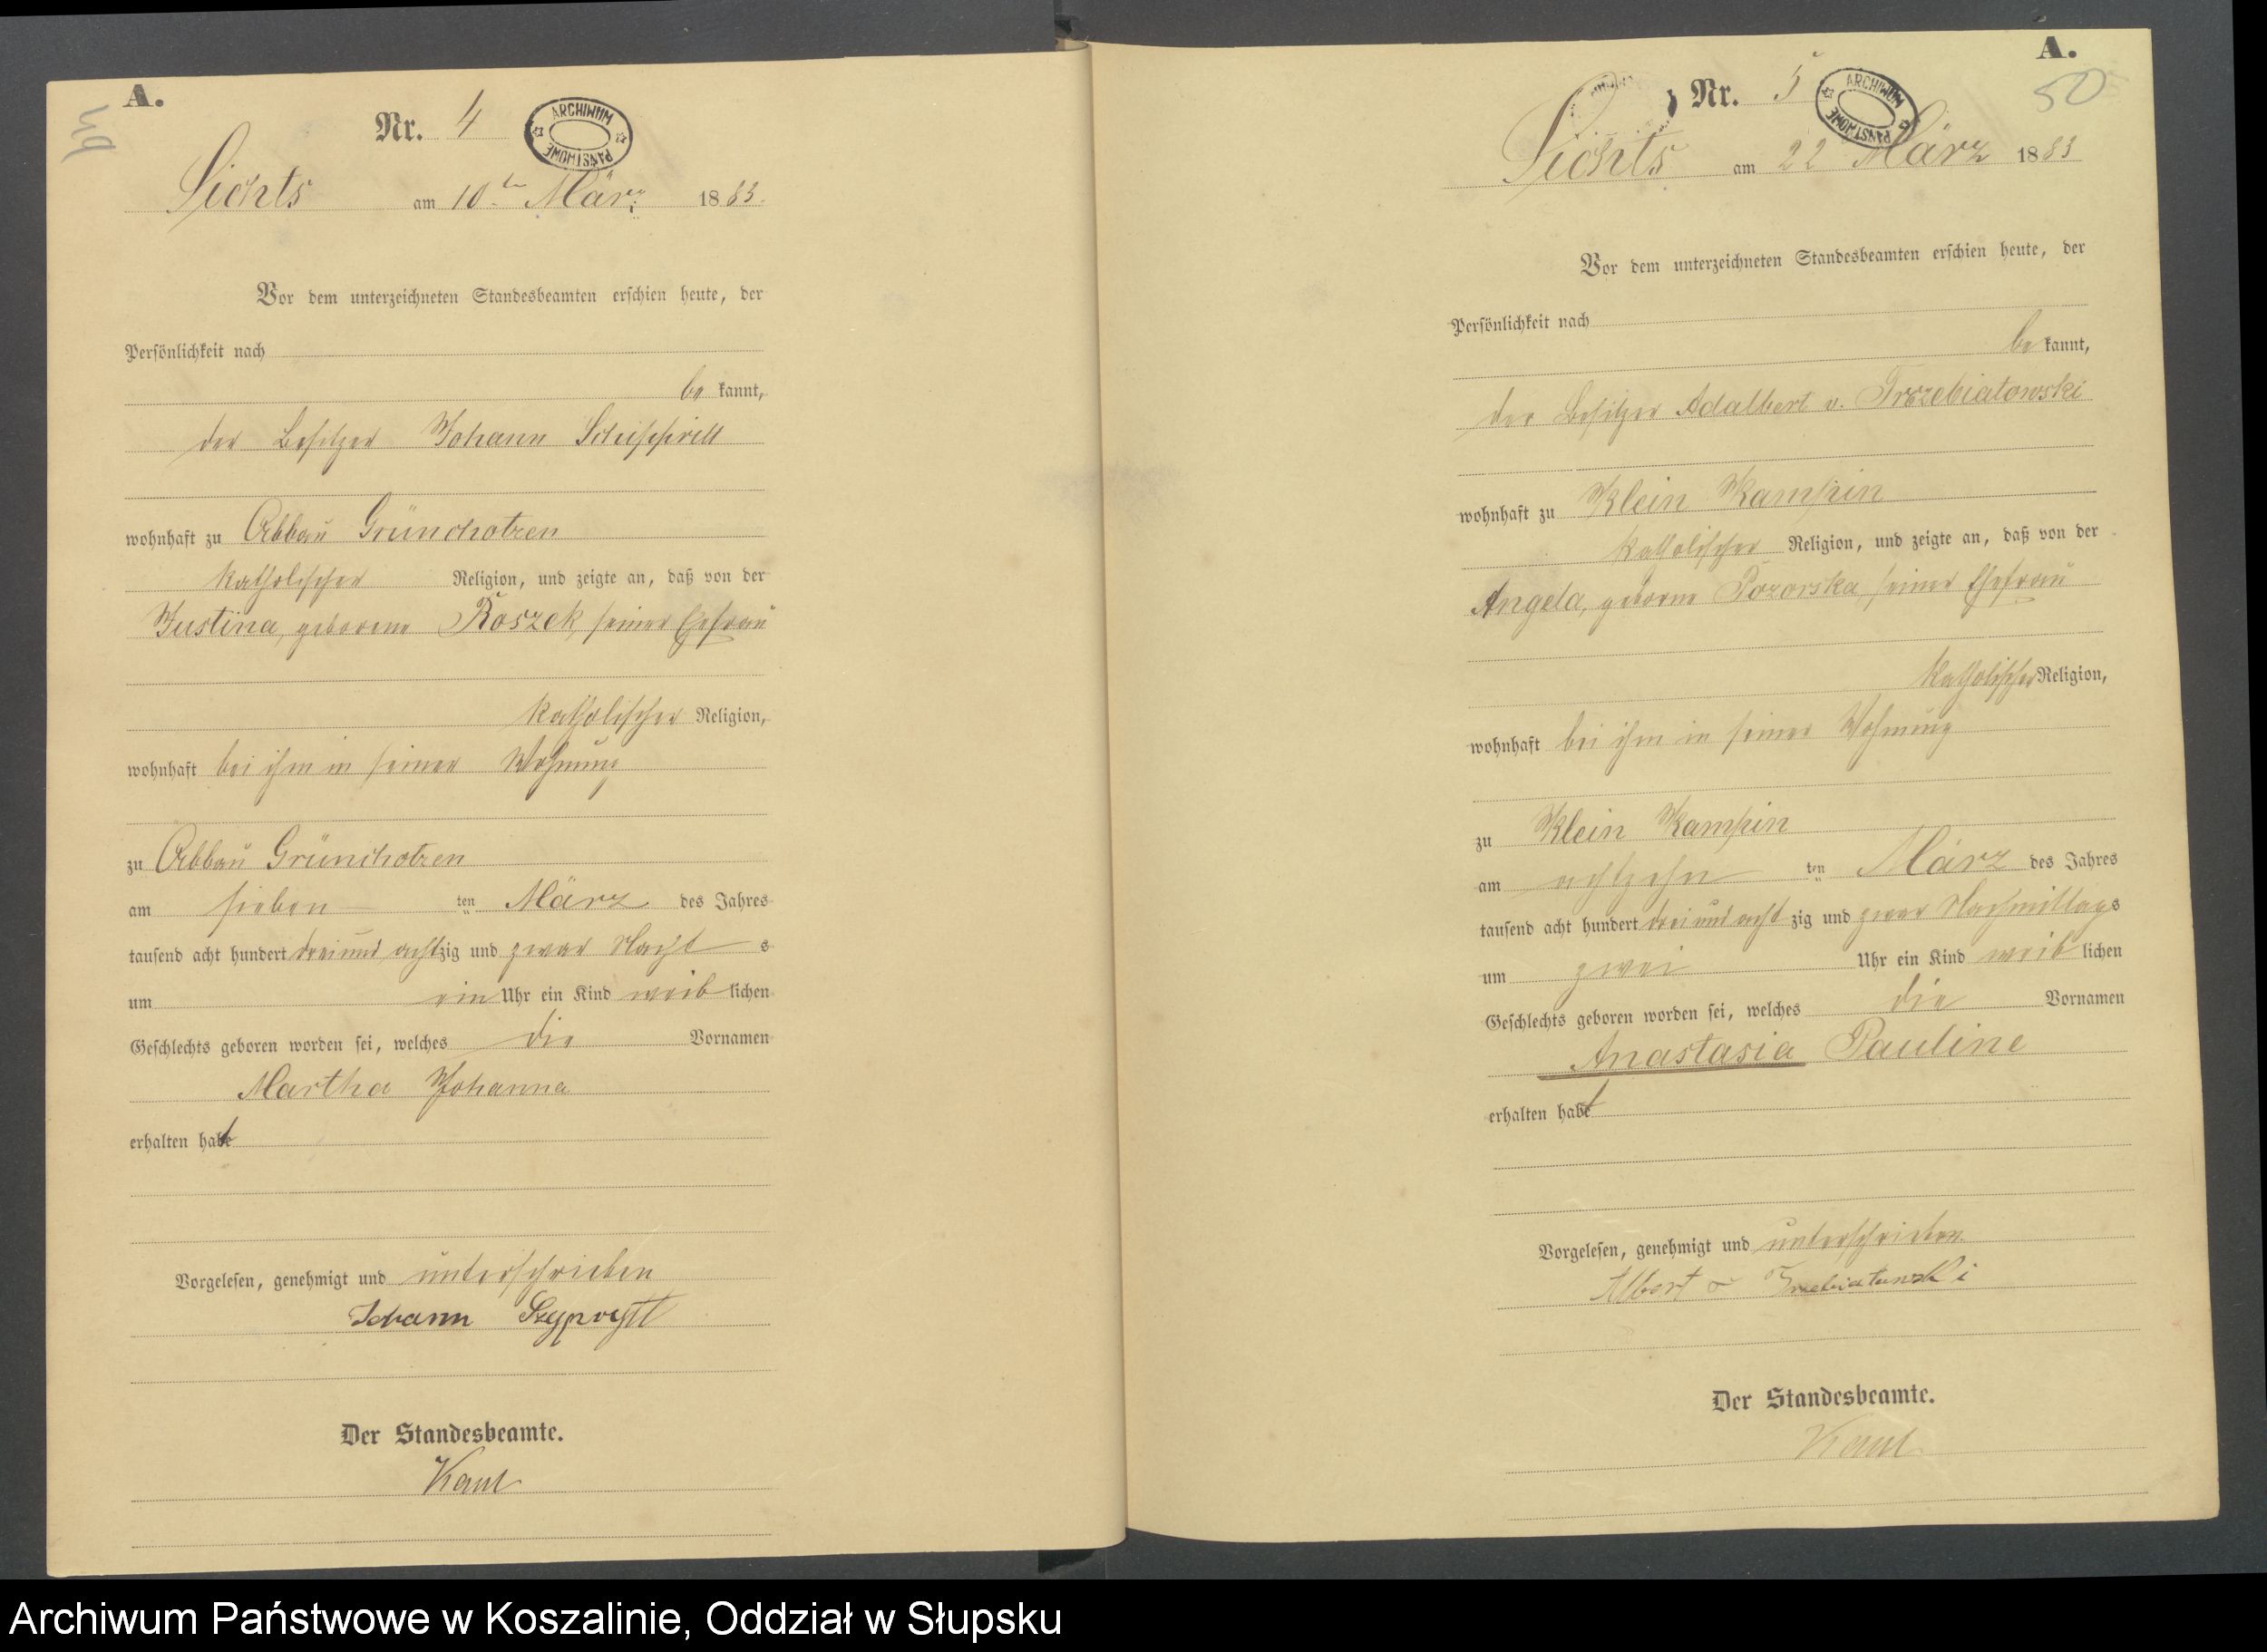 A.
Nr. 4
ARCHIWUM PAŃSTWOWE
Lichts am 10ten März 1883.
Vor dem unterzeichneten Standesbeamten erschien heute, der
Persönlichkeit nach
be kannt,
der Besitzer Johann
wohnhaft zu Abbau Grünchotzen
katholischer Religion, und zeigte an, daß von der
Justina, geborene Roszek, seiner Ehefrau
katholischer Religion,
wohnhaft bei ihm in seiner Wohnung
zu Abbau Grünchotzen
am sieben ten März des Jahres
tausend acht hundert dreiund achtzig und zwar Nacht s
um ein Uhr ein Kind weib lichen
Geschlechts geboren worden sei, welches die Vornamen
Martha Johanna
erhalten habt
Vorgelesen, genehmigt und unterschrieben
Johann
Der Standesbeamte.
A.
50
Nr. 5
ARCHIWUM PAŃSTWOWE
Lichts am 22 März 1883
Vor dem unterzeichneten Standesbeamten erschien heute, der
Persönlichkeit nach
be kannt,
der Besitzer Adalbert v. Trzebiatowski
wohnhaft zu Klein Kampin
katholischer Religion, und zeigte an, daß von der
Angela, geborne Pozorska, seiner Ehefrau
katholischer Religion,
wohnhaft bei ihm in seiner Wohnung
zu Klein Kampin
am achtzehn ten März des Jahres
tausend acht hundert dreiund acht zig und zwar Nachmittags
um zwei Uhr ein Kind weib lichen
Geschlechts geboren worden sei, welches die Vornamen
Anastasia Pauline
erhalten habt
Vorgelesen, genehmigt und unterschrieben
Albert v Trzebiatowski
Der Standesbeamte.
Archiwum Państwowe w Koszalinie, Oddział w Słupsku